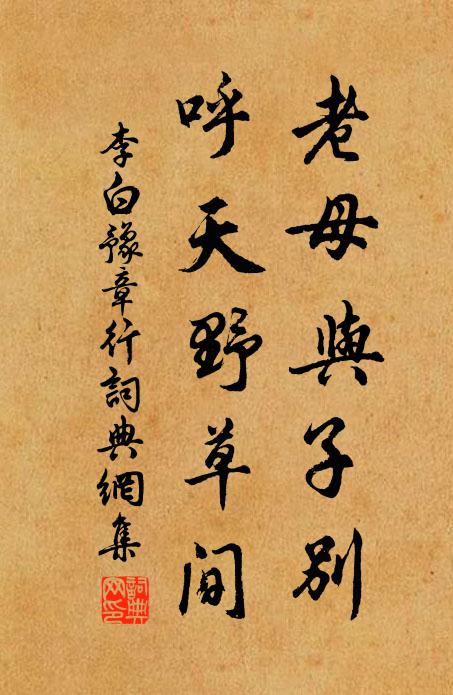 老母與子別
呼天野草間
李白豫章行詞典網集
詞典网印